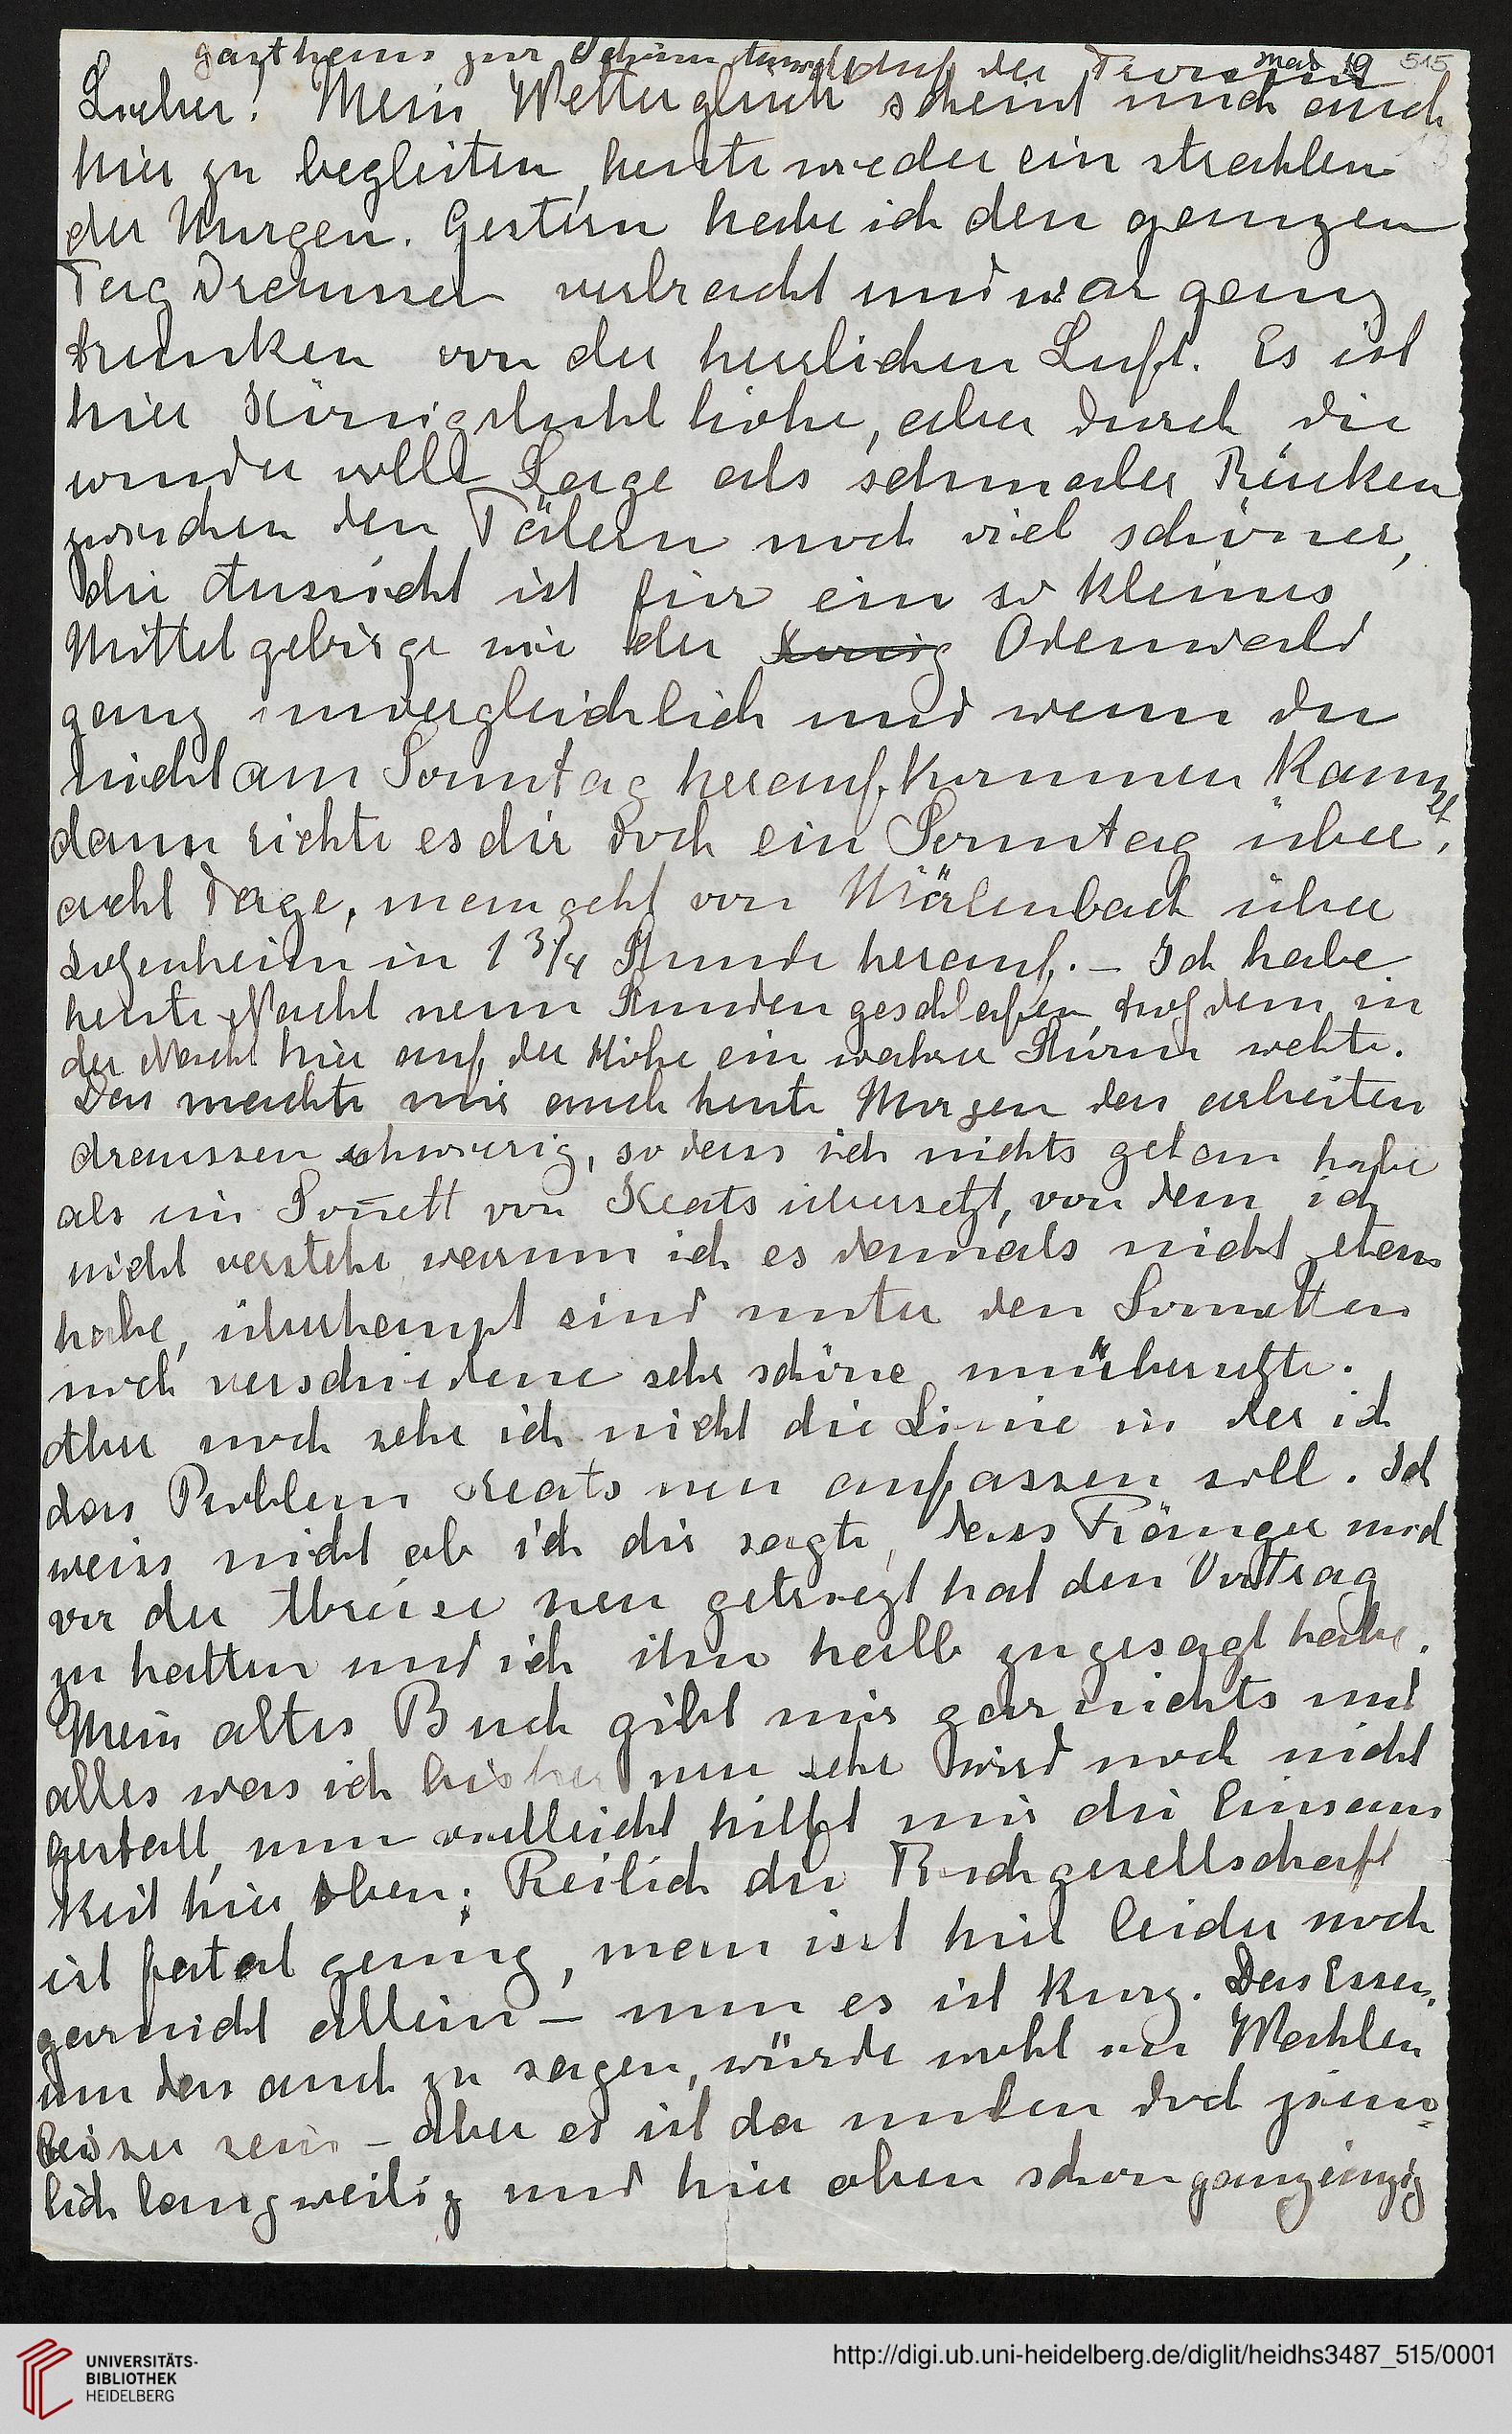 Gastheim zur schönen Aussicht auf der Tromm Mai 19 515
Lieber! Mein Wetterglück scheint mich auch
hier zu begleiten, heute wieder ein strahlen
der Morgen. Gestern habe ich den ganzen
Tag draussen verbracht und war ganz
trunken von der herrlichen Luft. Es ist
hier Königstuhl höhe, aber durch die
wunder volle Lage als schmaler Rücken
zwischen den Tälern noch viel schöner,
die Aussicht ist für ein so kleines
Mittelgebirge wie der König Odenwald
ganz unvergleichlich und wenn du
nicht am Sonntag heraufkommen kannst
dann richte es dir doch ein Sonntag über,
acht Tage, man geht von Wälenbach über
in 1 3/4 Stunde herauf. – Ich habe
heute Nacht neun Stunden geschlafen, trotzdem in
der Nacht hier auf der Höhe ein wahrer Sturm wehte.
Das machte mir auch heute Morgen das arbeiten
draussen schwierig, so dass ich nichts getan habe
als ein Sonett von Keats übersetzt, von dem ich
nicht verstehe warum ich es damals nicht getan
habe, überhaupt sind unter den Sonetten
noch verschiedene sehr schöne unübersetzte.
Aber noch sehe ich nicht die Linie in der ich
das Problem Keats neu anfassen soll. Ich
weiss nicht ob ich dir sagte, dass mich
vor der Abreise neu getriezt hat den Vortrag
zu halten und ich ihm halb zugesagt habe.
Mein altes Buch gibt mir gar nichts und
alles was ich bisher neu sehe wird noch nicht
gestalt, nun vielleicht hilft mir die Einsam
keit hier oben; Freilich die Tischgesellschaft
ist fatal genug, man isst hier leider noch
garnicht allein – nun es ist kurz. Das Essen,
um das auch zu sagen, würde wohl in Wahlen
besser sein – aber es ist da unten doch ziem-
lich langweilig und hier oben schon ganz einzig
UNIVERSITÄTS-
BIBLIOTHEK
HEIDELBERG
http://digi.ub.uni-heidelberg.de/diglit/heidhs3487_515/0001